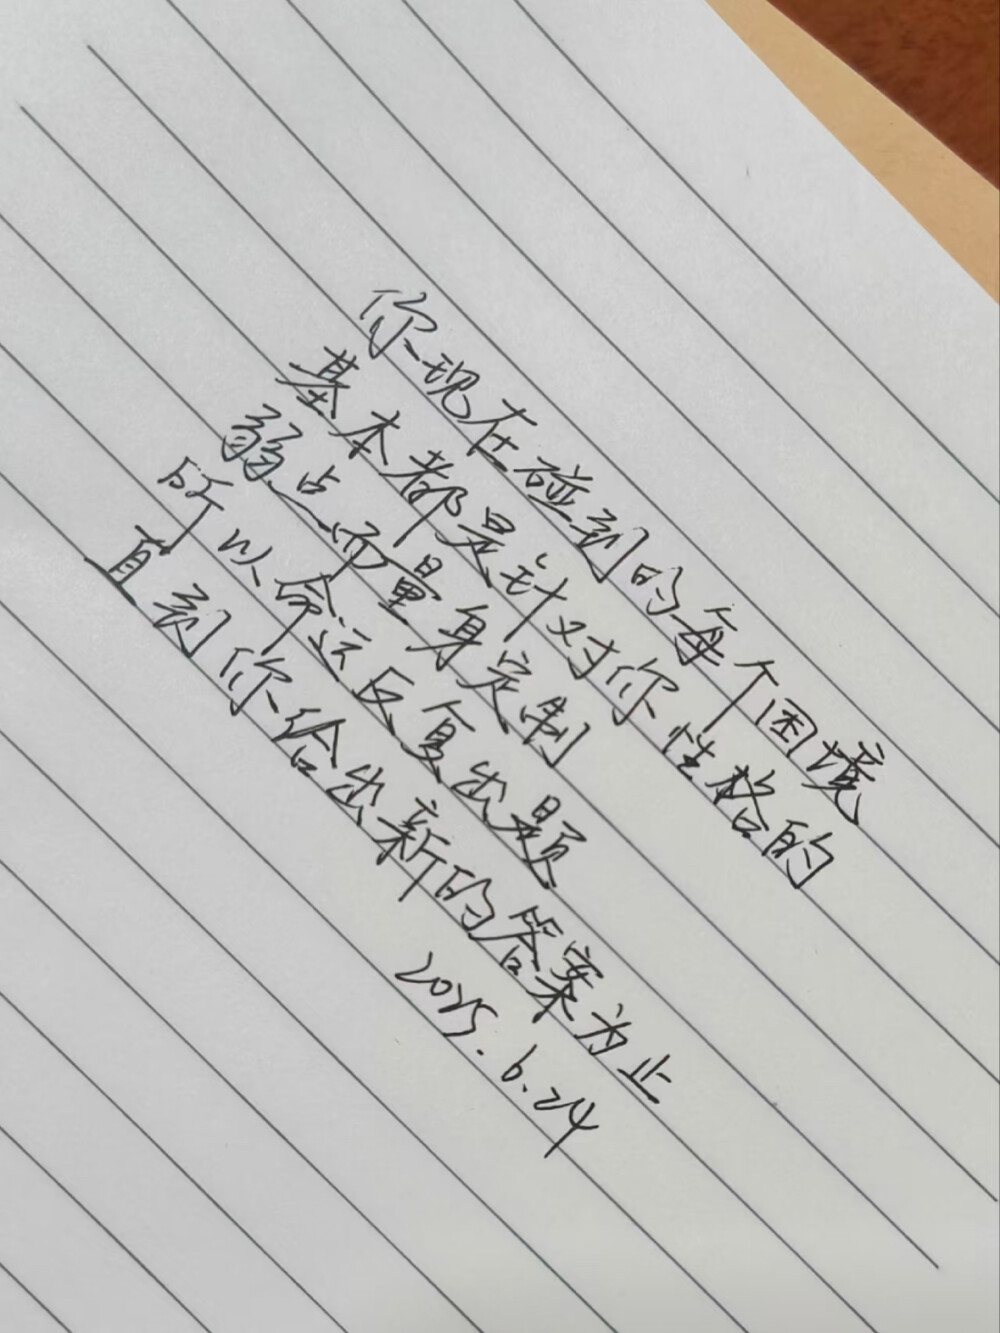 你现在碰到的每个困境
基本都是针对你性格的
弱点而量身定制
所以命运反复出题
直到你给出新的答案为止
2025.6.24